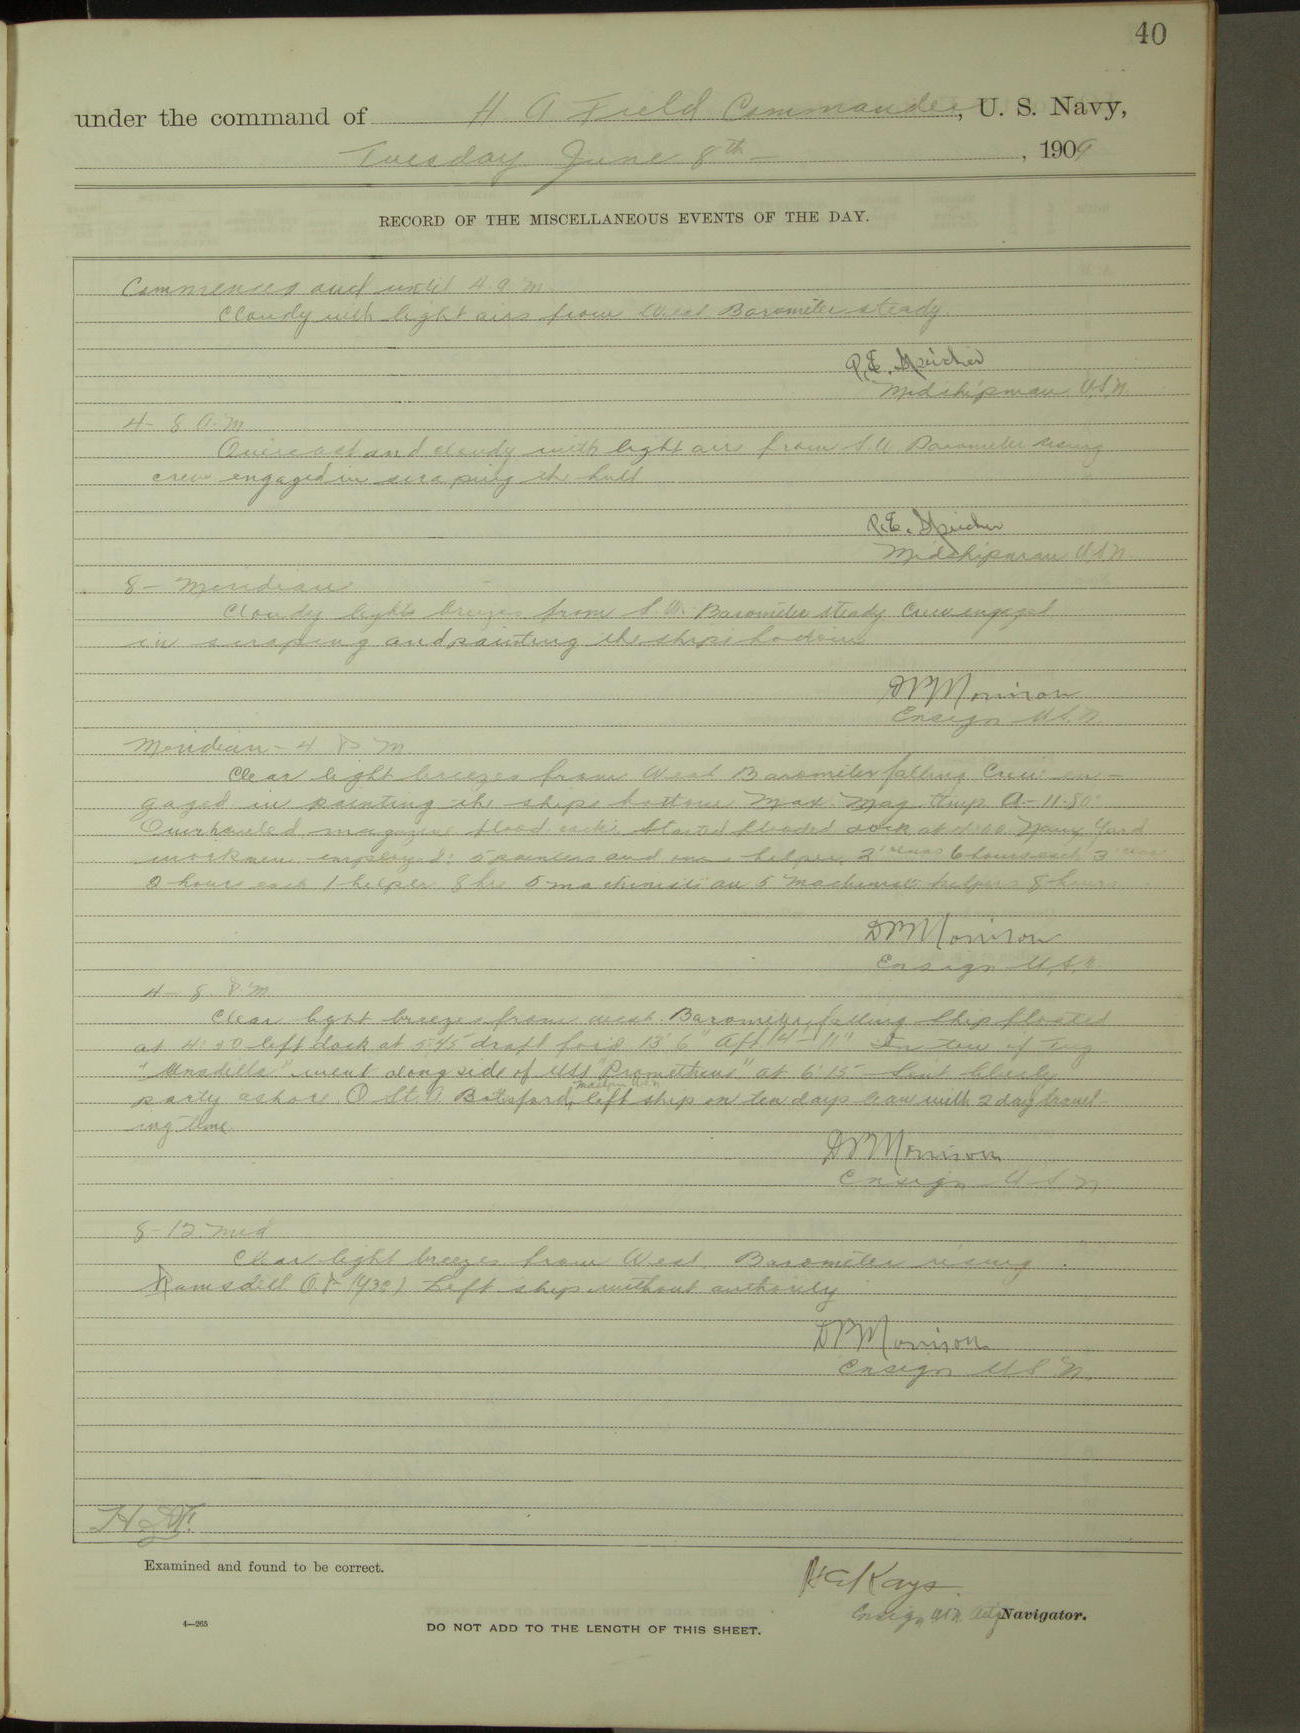 40
under the command of H. A. Field Commander, U. S. Navy,
Tuesday June 8th — , 1909
RECORD OF THE MISCELLANEOUS EVENTS OF THE DAY.
Commences and until 4 a m.
Cloudy with light airs from West Barometer steady.
P. E. Speicher
Midshipman U.S.N.
4 - 8 A.M.
Overcast and cloudy with light airs from S.W. Barometer rising
crew engaged in scraping the hull
P. E. Speicher
Midshipman U.S.N.
8 - Meridian
Cloudy light breezes from S.W. Barometer steady Crew engaged
in scraping and painting the ships bottom
D P Morrison
Ensign U.S.N.
Meridian - 4 P. M
Clear light breezes from West Barometer falling Crew en-
gaged in painting the ships bottom Max. Mag. temp. A - 11 - 80°
Overhauled magazine flood cocks Started flooded dock at 4:00 Navy Yard
workmen employed: 5 painters and one helper, 2 6 hours each 3
2 hours each 1 helper 8 hrs 5 machinists an 5 machinist helpers 8 hours
D P Morrison
Ensign U.S.N.
4 - 8 P.M.
Clear light breezes from west. Barometer falling Ship floated
at 4:50 left dock at 5:45 draft for'd 13' 6" Aft 14 - 11" In tow of tug
"Unadilla" went along side of USS "Prometheus" at 6:15 - Sent liberty
party ashore. O St. A Botsford, left ship on ten days leave with 2 day travel-
ing time
D P Morrison
Ensign U S N
8 - 12 Mid
Clear light breezes from West. Barometer rising.
Ramsdell O.S. Left ship without authority
D P Morrison
Ensign U S N.
Examined and found to be correct.
H G S Kays.
Ensign U.S.N. Act'g Navigator.
4—265
DO NOT ADD TO THE LENGTH OF THIS SHEET.